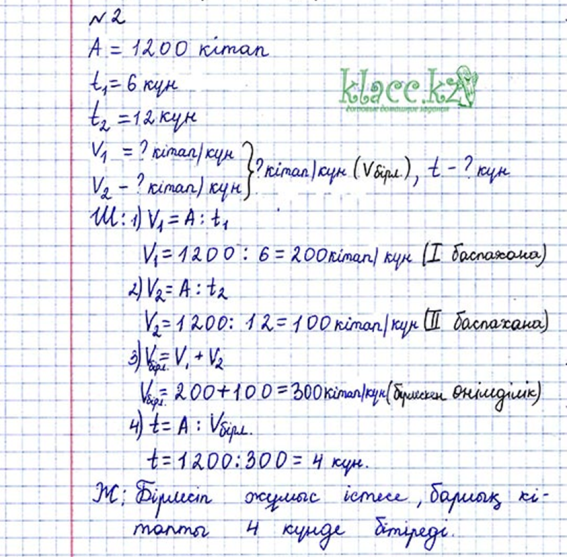 №2
A = 1200 кітап
t₁ = 6 күн
klacc.kz
готовые домашние задания
t₂ = 12 күн
V₁ = ? кітап/күн
V₂ - ? кітап/күн } ? кітап/күн (Vбірл.), t - ? күн
Ш: 1) V₁ = A : t₁
V₁ = 1200 : 6 = 200 кітап/күн (I баспахана)
2) V₂ = A : t₂
V₂ = 1200 : 12 = 100 кітап/күн (II баспахана)
3) Vбірл. = V₁ + V₂
Vбірл. = 200 + 100 = 300 кітап/күн (бірлескен өнімділік)
4) t = A : Vбірл.
t = 1200 : 300 = 4 күн.
Ж: Бірлесіп жұмыс істесе, барлық кі-
тапты 4 күнде бітіреді.